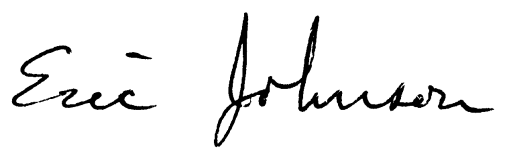 Eric Johnson